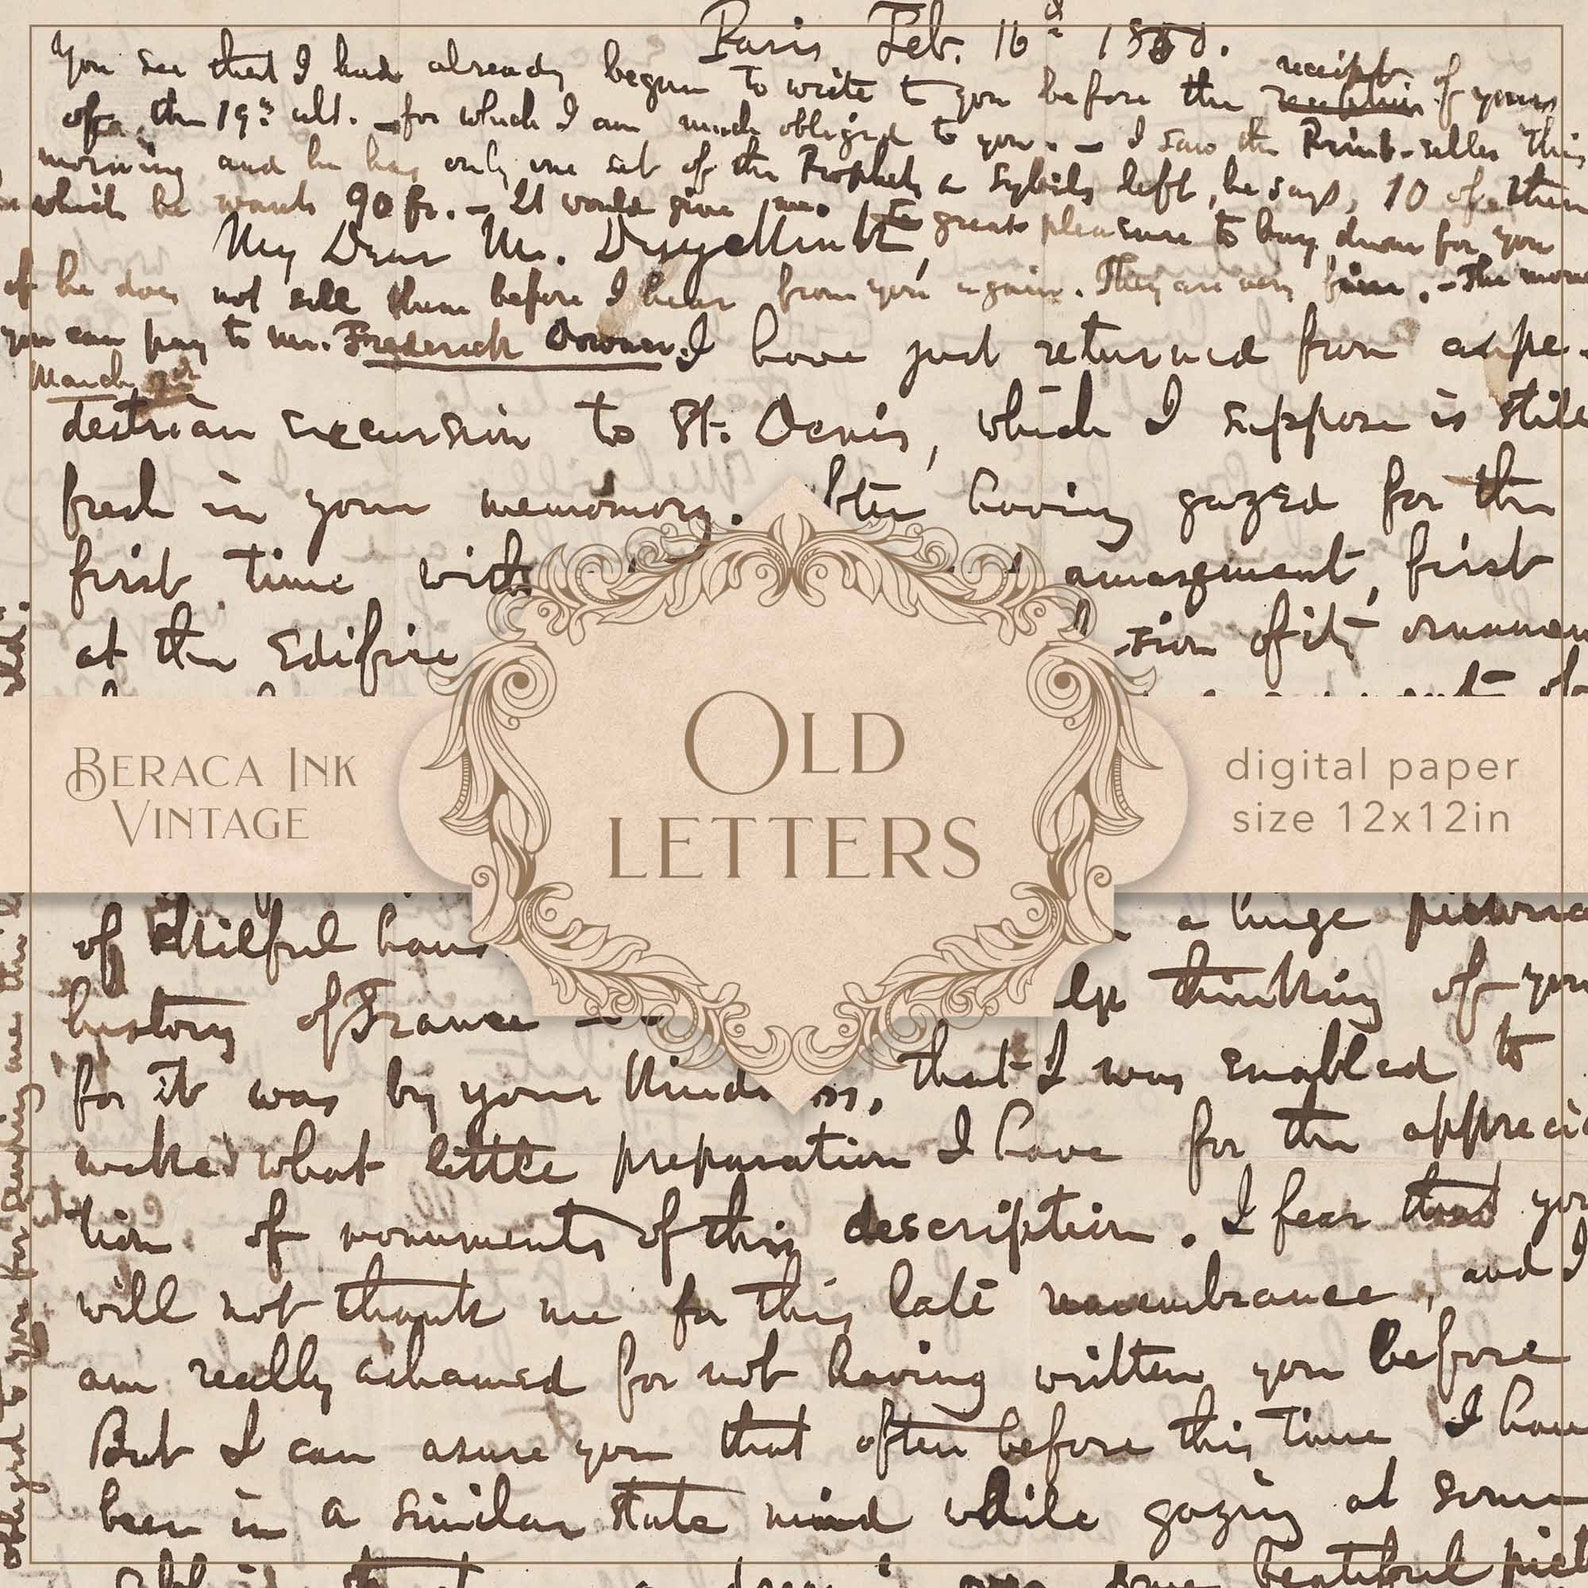 Paris Feb. 16
You see that I had already begun to write to you before the receipt of yours
of the 19th ult. - for which I am much obliged to you. - I saw the Print-seller this
morning and he has only one set of the Prophets a Sybils left, he says, 10 of them
which he wants 90 fr. - It would give me great pleasure to buy them for you
My Dear Mr.
if he does not sell them before I hear from you again. They are very fine. - The money
you can pay to Mr. Frederick
March
I have just returned from a pe-
destrian excursion to St. Denis, which I suppose is still
fresh in your memory. having gazed for the
first time with amazement, first
at the Edifice of its
BERACA INK
VINTAGE
OLD
LETTERS
digital paper
size 12x12in
of skilful a huge
history of France thinking of
for it was by your that I was enabled to
make what little preparation I have for the apprecia
tion of monuments of this description. I fear that you
will not thank me for this late remembrance, and I
am really ashamed for not having written you before
But I can assure you that often before this time I have
been in a similar state mind while gazing at some
beautiful